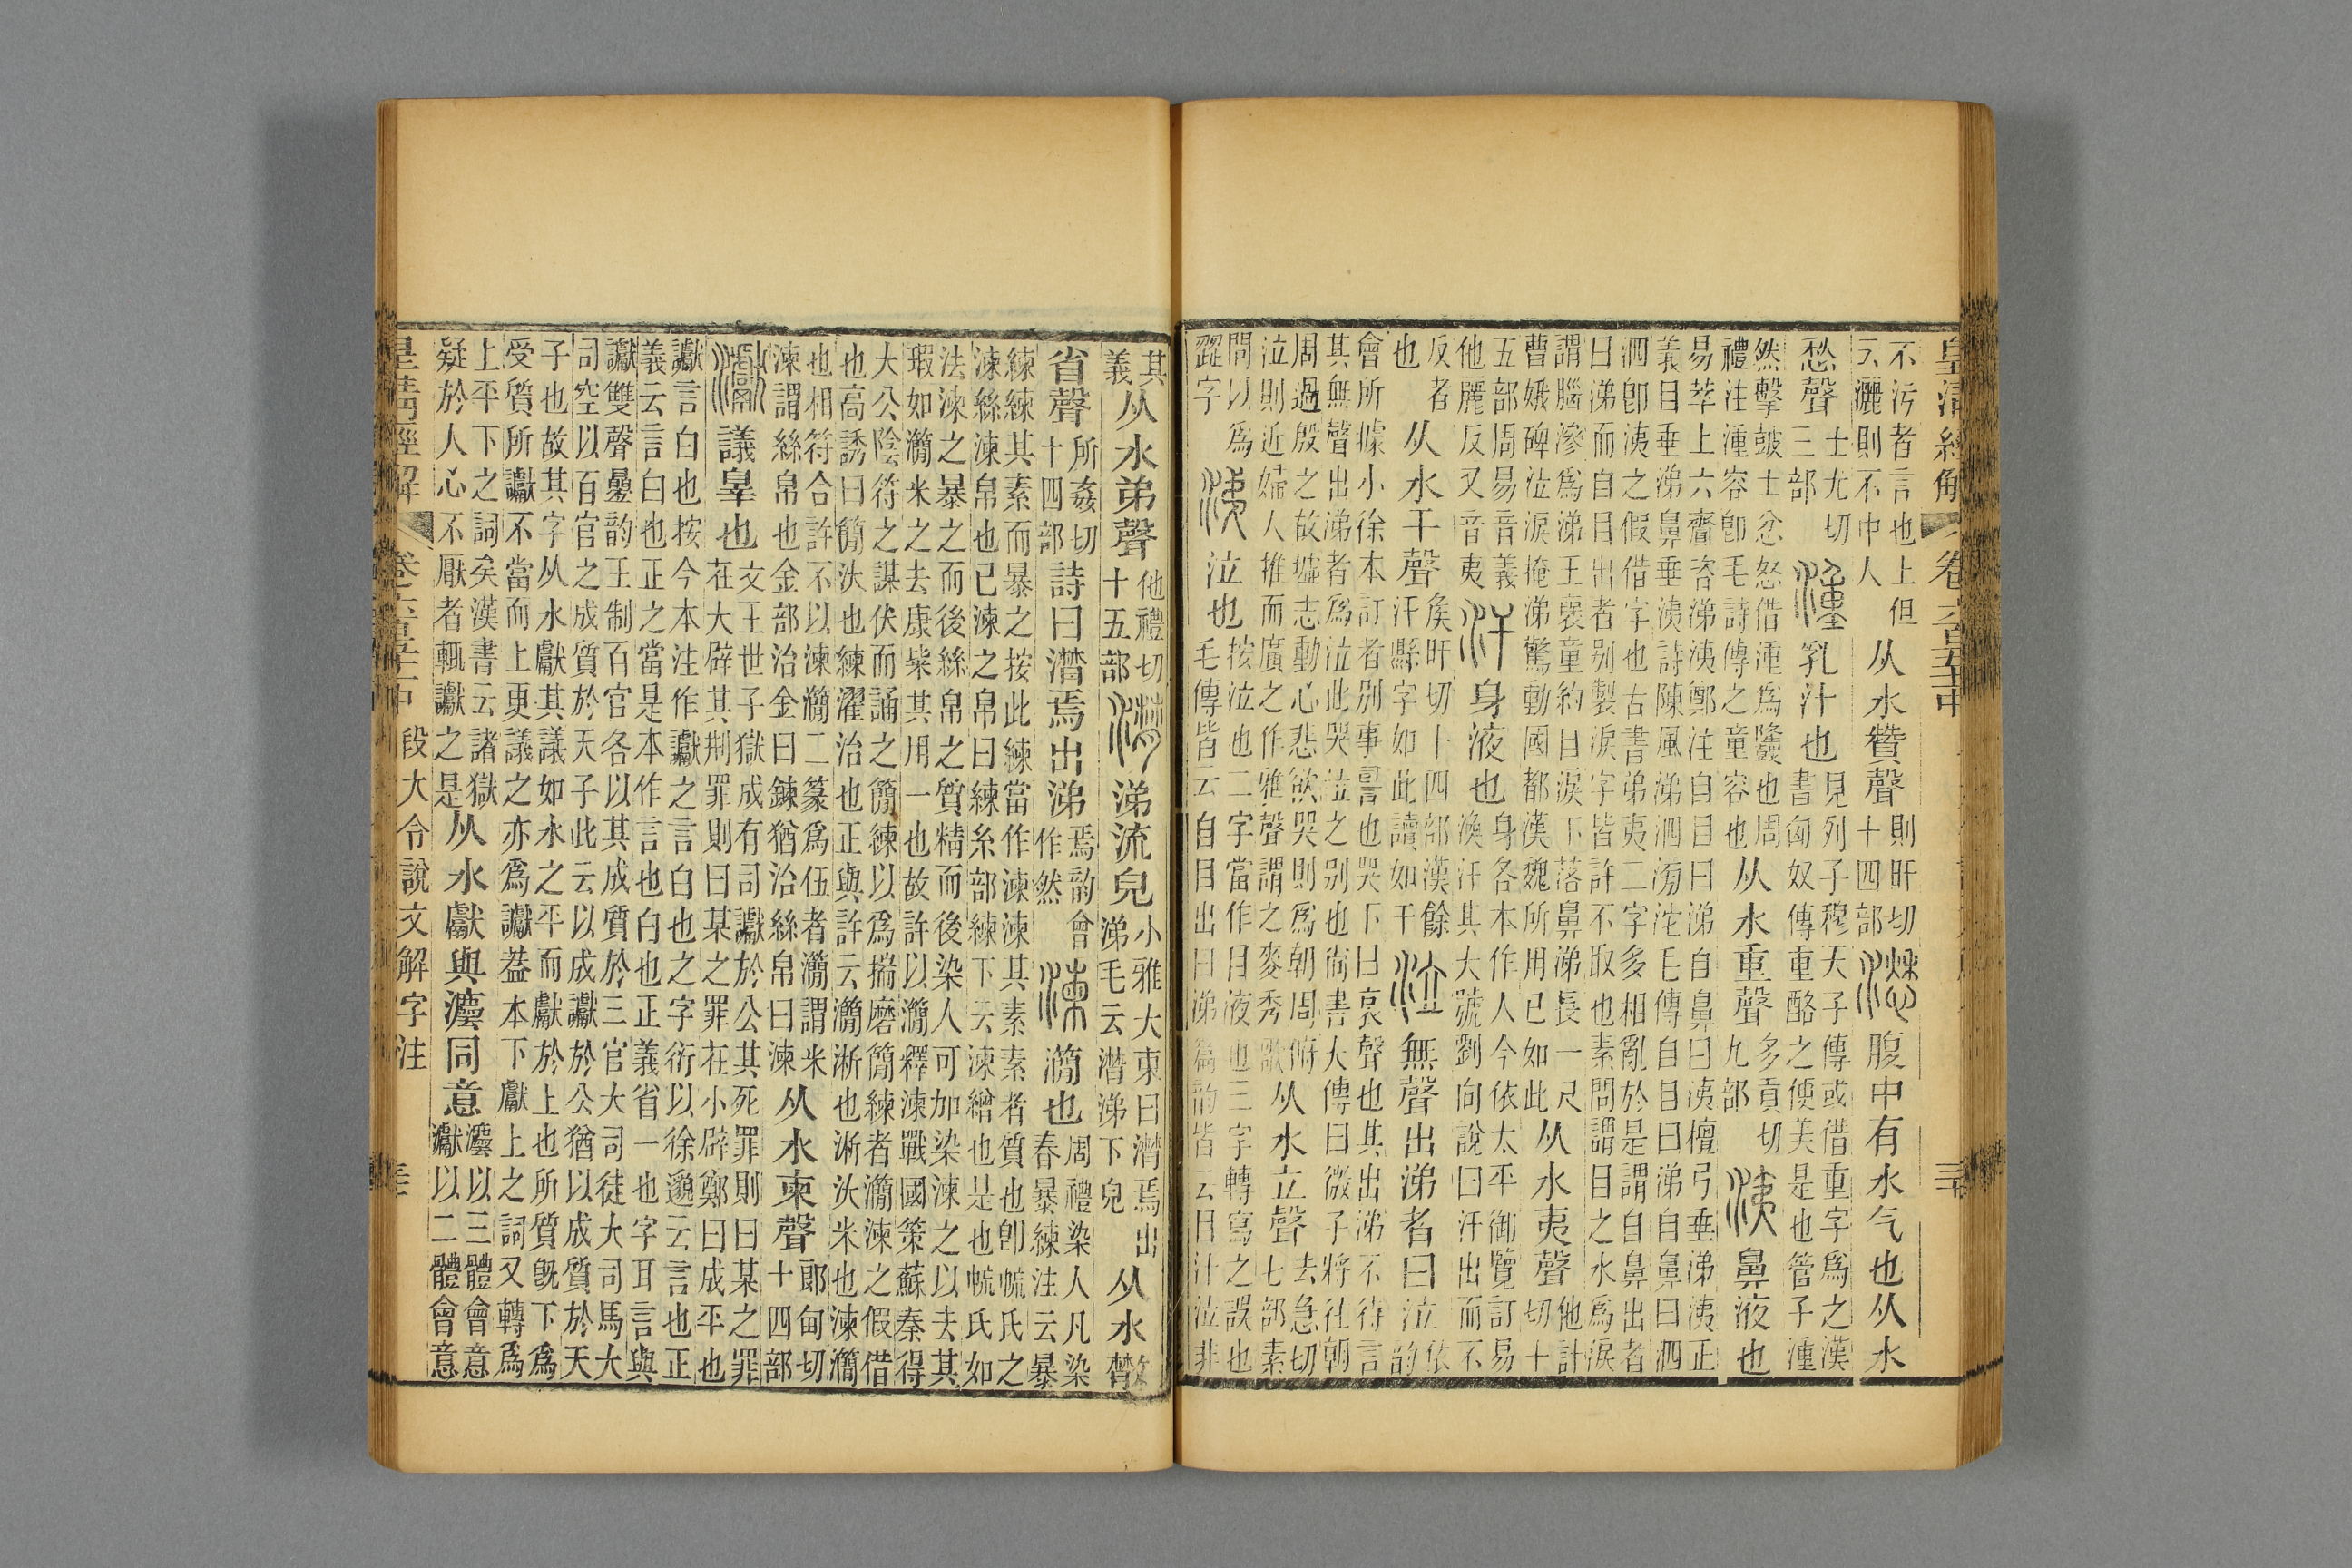 皇清經解 卷六百五十一中 三十
不污者言也上但云灑則不中人从水贊聲則旰切十四部腹中有水气也从水
愁聲士尤切三部湩乳汁也見列子穆天子傳或借重字爲之漢書匈奴傳重酪之便美是也管子湩
然擊鼓士忿怒借湩爲也周禮注湩容卽毛詩傳之童容也从水重聲多貢切九部洟鼻液也
易萃上六齎咨涕洟鄭注自目曰涕自鼻曰洟檀弓垂涕洟正義目垂涕鼻垂洟詩陳風涕泗滂沱毛傳自目曰涕自鼻曰泗
泗卽洟之假借字也古書弟夷二字多相亂於是謂自鼻出者曰涕而自目出者别製淚字皆許不取也素問謂目之水爲淚
謂腦滲爲涕王襃童約曰淚下落鼻涕長一尺曹娥碑泣淚掩涕驚動國都漢魏所用已如此从水夷聲他計切十
五部周易音義他麗反又音夷汗身液也身各本作人今依太平御覽訂易渙汗其大號劉向說曰汗出而不
反者也从水干聲矦旰切十四部漢餘汗縣字如此讀如干泣無聲出涕者曰泣依韵
會所據小徐本訂者别事䛐也哭下曰哀聲也其出涕不待言其無聲出涕者爲泣此哭泣之别也尙書大傳曰微子將往朝
周過殷之故墟志動心悲欲哭則爲朝周俯泣則近婦人推而廣之作雅聲謂之麥秀歌从水立聲去急切七部素
問以爲澀字涕泣也按泣也二字當作目液也三字轉寫之誤也毛傳皆云自目出曰涕篇韵皆云目汁泣非
其義从水弟聲他禮切十五部潸涕流皃小雅大東曰潸焉出涕毛云潸涕下皃从水𢿱
省聲所姦切十四部詩曰潸焉出涕焉韵會作然湅㶕也周禮染人凡染春暴練注云暴
練練其素而暴之按此練當作湅湅其素素者質也卽㡛氏之湅絲湅帛也已湅之帛曰練糸部練下云湅繒也是也㡛氏如
法湅之暴之而後絲帛之質精而後染人可加染湅之以去其瑕如㶕米之去康粊其用一也故許以㶕釋湅戰國策蘇秦得
大公陰符之謀伏而誦之簡練以爲揣磨簡練者㶕湅之假借也高誘曰簡汰也練濯治也正與許云㶕淅也淅汰米也湅㶕
也相符合許不以湅㶕二篆爲伍者㶕謂米湅謂絲帛也金部治金曰鍊猶治絲帛曰湅从水柬聲郞甸切十四部
瀗議辠也文王世子獄成有司讞於公其死罪則曰某之罪在大辟其刑罪則曰某之罪在小辟鄭曰成平也
讞言白也按今本注作讞之言白也之字衍以徐邈云言也正義云言白也正之當是本作言也白也正義省一也字耳言與
讞雙聲㬪韵王制百官各以其成質於三官大司徒大司馬大司空以百官之成質於天子此云以成讞於公猶以成質於天
子也故其字从水獻其議如水之平而獻於上也所質旣下爲受質所讞不當而上更議之亦爲讞葢本下獻上之詞又轉爲
上平下之詞矣漢書云諸獄疑於人心不厭者輒讞之是从水獻與灋同意灋以三體會意瀗以二體會意
皇清經解 卷六百五十一中 段大令說文解字注 三十